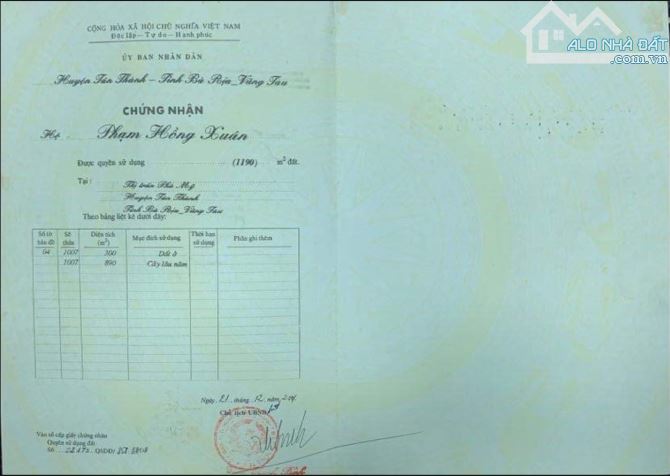 CỘNG HÒA XÃ HỘI CHỦ NGHĨA VIỆT NAM
Độc lập - Tự do - Hạnh phúc
ỦY BAN NHÂN DÂN
Huyện Tân Thành - Tỉnh Bà Rịa_Vũng Tàu
CHỨNG NHẬN
Hộ Phạm Hồng Xuân
Được quyền sử dụng (1190) m² đất.
Tại : Thị trấn Phú Mỹ
Huyện Tân Thành
Tỉnh Bà Rịa_Vũng Tàu
Theo bảng liệt kê dưới đây:
Số tờ bản đồ Số thửa Diện tích (m²) Mục đích sử dụng Thời hạn sử dụng Phần ghi thêm
04 1007 300 Đất ở
1007 890 Cây lâu năm
Ngày 21 tháng 12 năm
Chủ tịch UBND
Vào sổ cấp giấy chứng nhận
Quyền sử dụng đất
Số QSDĐ/
ALO NHÀ ĐẤT
.com.vn